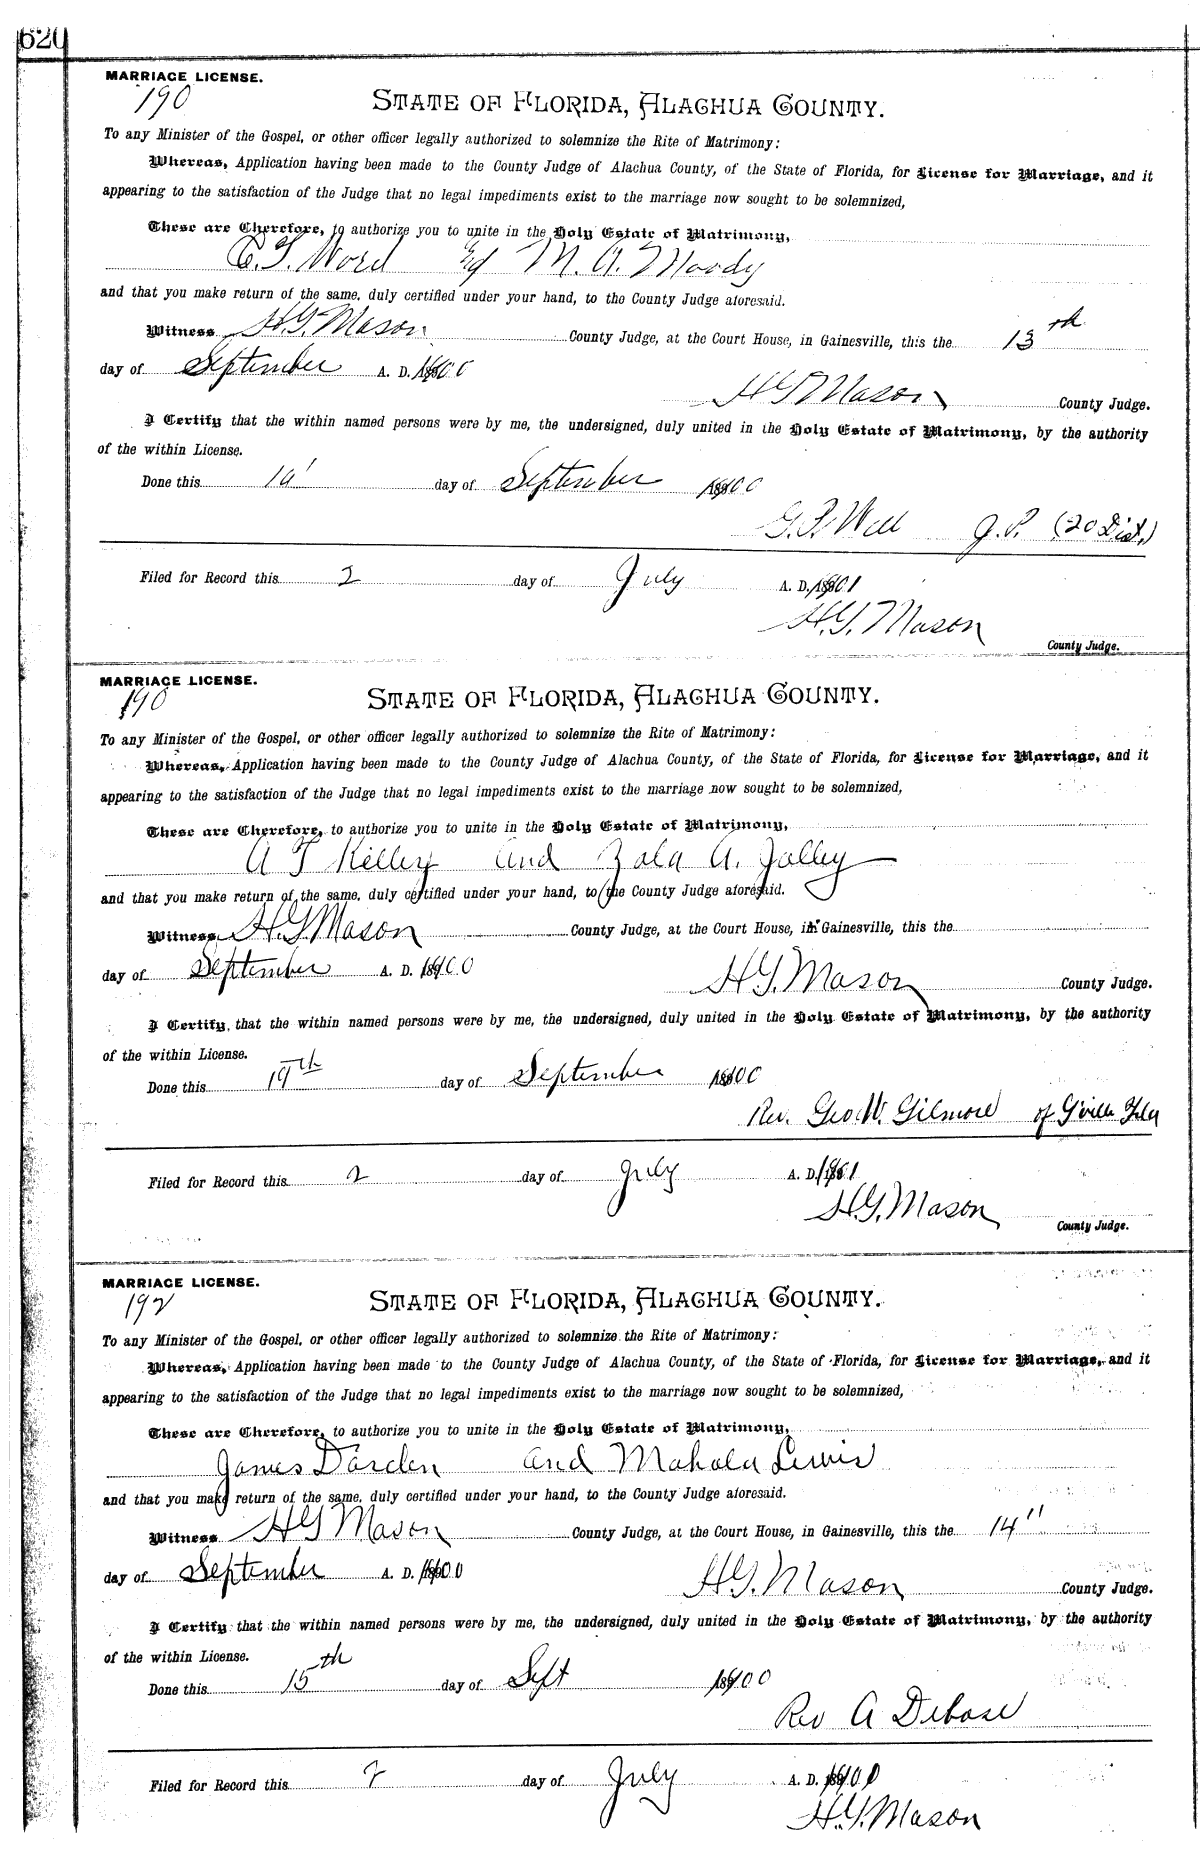 620
MARRIAGE LICENSE.
190
STATE OF FLORIDA, ALACHUA COUNTY.
To any Minister of the Gospel, or other officer legally authorized to solemnize the Rite of Matrimony:
Whereas, Application having been made to the County Judge of Alachua County, of the State of Florida, for License for Marriage, and it
appearing to the satisfaction of the Judge that no legal impediments exist to the marriage now sought to be solemnized,
These are Therefore, to authorize you to unite in the Holy Estate of Matrimony,
M. A. Moody
and that you make return of the same, duly certified under your hand, to the County Judge aforesaid.
Witness H.G. Mason County Judge, at the Court House, in Gainesville, this the 13th
day of September A. D. 1900
H.G. Mason County Judge.
I Certify that the within named persons were by me, the undersigned, duly united in the Holy Estate of Matrimony, by the authority
of the within License.
Done this day of September 1900
J.P. (20 Dist.)
Filed for Record this 2 day of July A. D. 1901
H.G. Mason
County Judge.
MARRIAGE LICENSE.
190
STATE OF FLORIDA, ALACHUA COUNTY.
To any Minister of the Gospel, or other officer legally authorized to solemnize the Rite of Matrimony:
Whereas, Application having been made to the County Judge of Alachua County, of the State of Florida, for License for Marriage, and it
appearing to the satisfaction of the Judge that no legal impediments exist to the marriage now sought to be solemnized,
These are Therefore, to authorize you to unite in the Holy Estate of Matrimony,
A T Kelley and Zola A. Jolley
and that you make return of the same, duly certified under your hand, to the County Judge aforesaid.
Witness H.G. Mason County Judge, at the Court House, in Gainesville, this the
day of September A. D. 1900
H.G. Mason County Judge.
I Certify, that the within named persons were by me, the undersigned, duly united in the Holy Estate of Matrimony, by the authority
of the within License.
Done this 19th day of September 1900
Rev. Geo W. Gilmore of G'ville Fla
Filed for Record this 2 day of July A. D. 1901
H.G. Mason
County Judge.
MARRIAGE LICENSE.
192
STATE OF FLORIDA, ALACHUA COUNTY.
To any Minister of the Gospel, or other officer legally authorized to solemnize the Rite of Matrimony:
Whereas, Application having been made to the County Judge of Alachua County, of the State of Florida, for License for Marriage, and it
appearing to the satisfaction of the Judge that no legal impediments exist to the marriage now sought to be solemnized,
These are Therefore, to authorize you to unite in the Holy Estate of Matrimony,
James Darden and Mahala Lewis
and that you make return of the same, duly certified under your hand, to the County Judge aforesaid.
Witness H G Mason County Judge, at the Court House, in Gainesville, this the 14"
day of September A. D. 1900
H.G. Mason County Judge.
I Certify that the within named persons were by me, the undersigned, duly united in the Holy Estate of Matrimony, by the authority
of the within License.
Done this 15th day of Sept 1900
Rev A Debose
Filed for Record this 2 day of July A. D. 1901
H.G. Mason